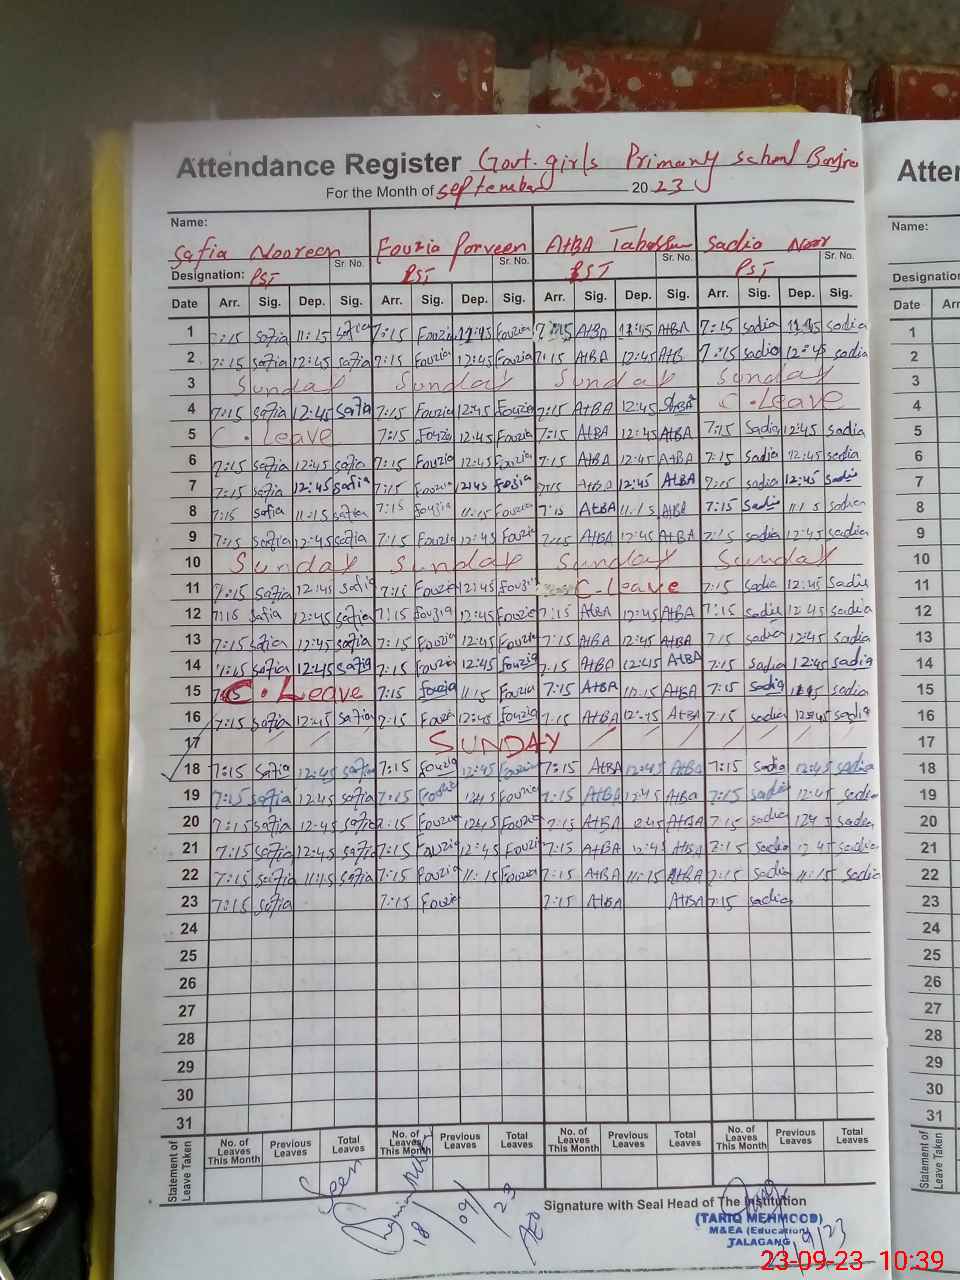 Attendance Register Govt. girls Primary school
For the Month of September 2023
Name:
Safia Nooreen Fouzia Parveen AtBA Sadia Noor
Sr. No. Sr. No. Sr. No. Sr. No.
Designation: PST PST PST PST
Date Arr. Sig. Dep. Sig. Arr. Sig. Dep. Sig. Arr. Sig. Dep. Sig. Arr. Sig. Dep. Sig.
1 7:15 safia 11:15 safia 7:15 Fouzia 11:45 Fouzia AtBA 11:45 AtBA 7:15 sadia sadia
2 7:15 safia 12:45 safia 7:15 Fouzia 12:45 Fouzia 7:15 AtBA 12:45 AtB 7:15 sadia 12:45 sadia
3 Sunday Sunday Sunday Sunday
4 7:15 safia 12:45 safia 7:15 Fouzia 12:45 Fouzia 7:15 AtBA 12:45 AtBA C.Leave
5 C.Leave 7:15 Fouzia 12:45 Fouzia 7:15 AtBA 12:45 AtBA 7:15 Sadia 12:45 sadia
6 7:15 safia 12:45 safia 7:15 Fouzia 12:45 Fouzia 7:15 AtBA 12:45 AtBA 7:15 sadia 12:45 sadia
7 7:15 safia 12:45 safia 7:15 Fouzia 12:45 Fouzia 7:15 AtBA 12:45 AtBA 7:15 sadia 12:45 sadia
8 7:15 safia 11:15 safia 7:15 Fouzia 11:15 Fouzia 7:15 AtBA 11:15 AtBA 7:15 Sadia 11:15 sadia
9 7:15 safia 12:45 safia 7:15 Fouzia 12:45 Fouzia 7:15 AtBA 12:45 AtBA 7:15 sadia 12:45 sadia
10 Sunday Sunday Sunday Sunday
11 7:15 safia 12:45 safia 7:15 Fouzia 12:45 Fouzia C.Leave 7:15 sadia 12:45 sadia
12 7:15 safia 12:45 safia 7:15 Fouzia 12:45 Fouzia 7:15 AtBA 12:45 AtBA 7:15 sadia 12:45 sadia
13 7:15 safia 12:45 safia 7:15 Fouzia 12:45 Fouzia 7:15 AtBA 12:45 AtBA 7:15 sadia 12:45 sadia
14 7:15 safia 12:45 safia 7:15 Fouzia 12:45 Fouzia 7:15 AtBA 12:45 AtBA 7:15 sadia 12:45 sadia
15 C.Leave 7:15 Fouzia 11:15 Fouzia 7:15 AtBA 11:15 AtBA 7:15 sadia sadia
16 7:15 safia 12:45 safia 7:15 Fouzia 12:45 Fouzia 7:15 AtBA 12:45 AtBA 7:15 sadia 12:45 sadia
17 SUNDAY
18 7:15 safia 12:45 safia 7:15 Fouzia 12:45 Fouzia 7:15 AtBA 12:45 AtBA 7:15 sadia 12:45 sadia
19 7:15 safia 12:45 safia 7:15 Fouzia 12:45 Fouzia 7:15 AtBA 12:45 AtBA 7:15 sadia 12:45 sadia
20 7:15 safia 12:45 safia 7:15 Fouzia 12:45 Fouzia 7:15 AtBA 2:45 AtBA 7:15 sadia 12:45 sadia
21 7:15 safia 12:45 safia 7:15 Fouzia 12:45 Fouzia 7:15 AtBA 12:45 AtBA 7:15 sadia 12:45 sadia
22 7:15 safia 11:15 safia 7:15 Fouzia 11:15 Fouzia 7:15 AtBA 11:15 AtBA 7:15 sadia 11:15 sadia
23 7:15 safia 7:15 Fouzia 7:15 AtBA AtBA 7:15 sadia
24
25
26
27
28
29
30
31
Statement of Leave Taken
No. of Leaves This Month Previous Leaves Total Leaves No. of Leaves This Month Previous Leaves Total Leaves No. of Leaves This Month Previous Leaves Total Leaves No. of Leaves This Month Previous Leaves Total Leaves
Seen
18/09/23
Signature with Seal Head of The Institution
(TARIQ MEHMOOD)
M&EA (Education)
TALAGANG
Atten
Name:
Designation
Date Arr
1
2
3
4
5
6
7
8
9
10
11
12
13
14
15
16
17
18
19
20
21
22
23
24
25
26
27
28
29
30
31
Statement of Leave Taken
23-09-23 10:39